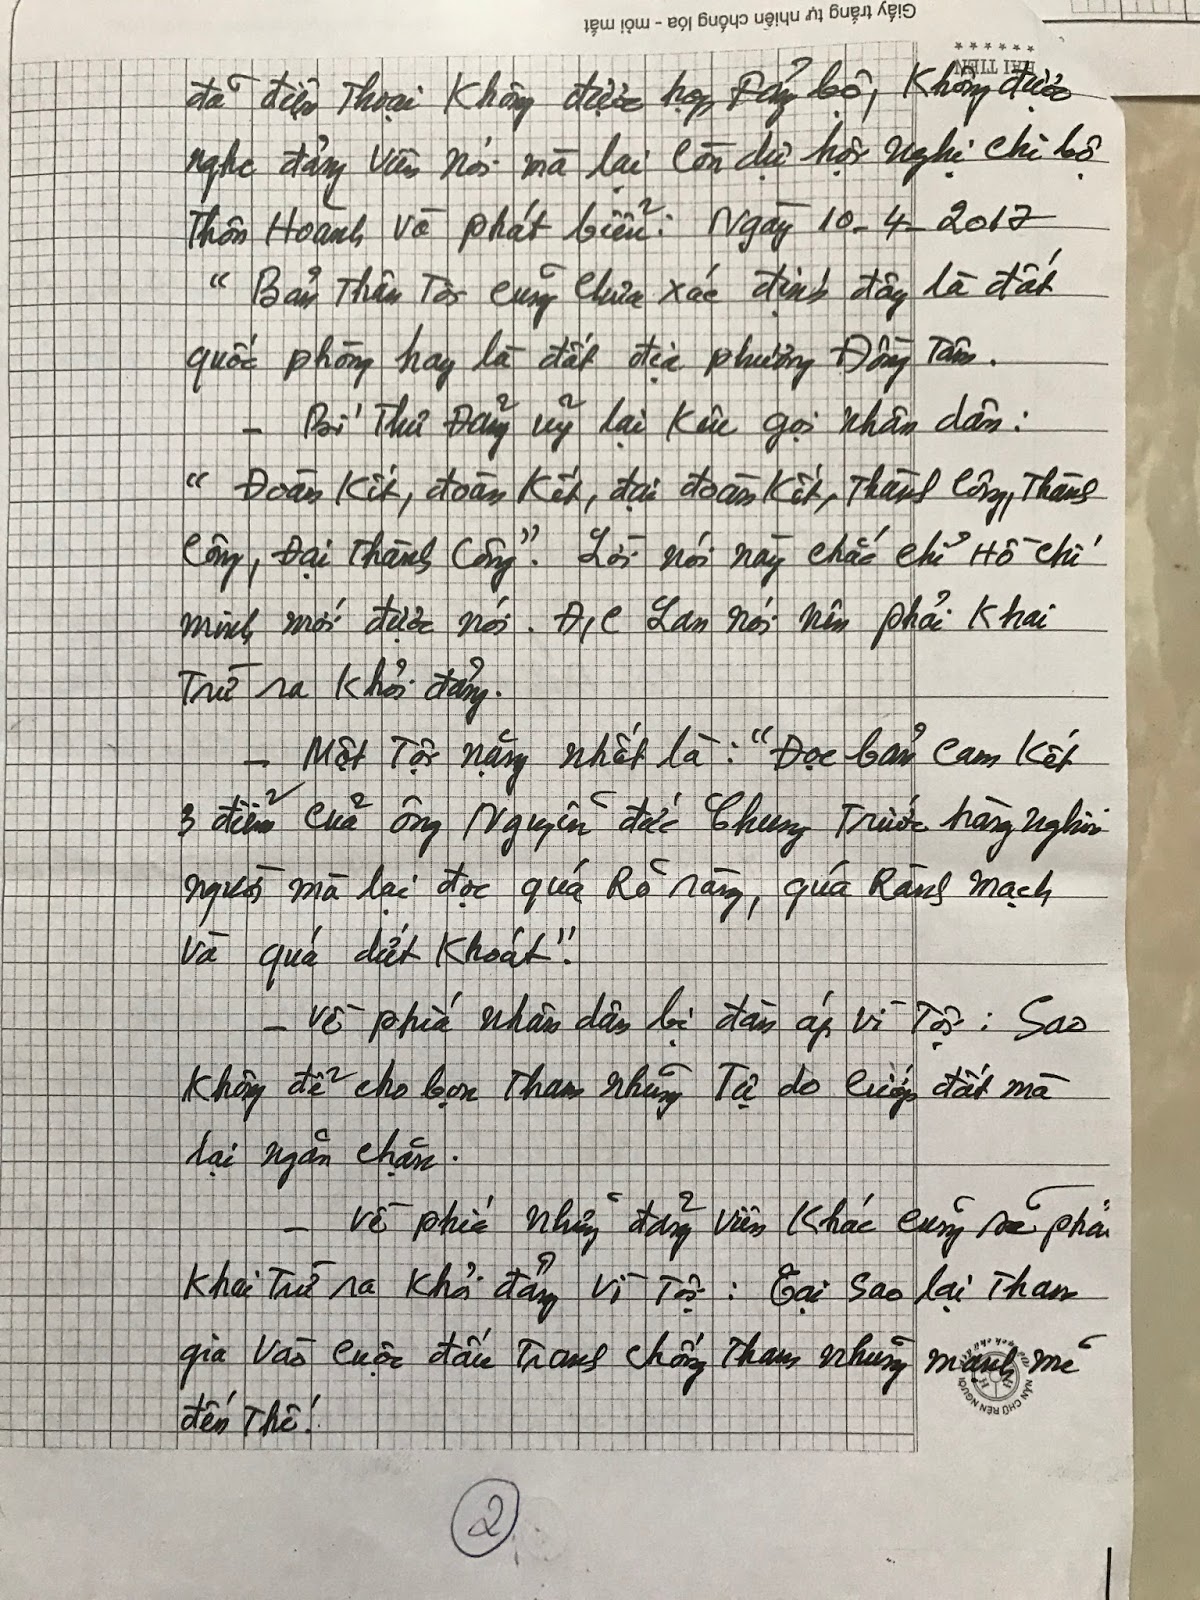 Giấy trắng tự nhiên chống lóa - mỏi mắt
HẢI TIẾN
đã điện Thoại Không được họp Đảng bộ, Không được
nghe đảng viên nói mà lại còn dự hội nghị chi bộ
Thôn Hoành và phát biểu: Ngày 10-4-2017
"Bản Thân Tôi cũng chưa xác định đây là đất
quốc phòng hay là đất địa phương Đồng Tâm.
- Bí Thư Đảng uỷ lại Kêu gọi nhân dân:
"Đoàn Kết, đoàn Kết, đại đoàn Kết, Thành Công, Thành
Công, Đại Thành Công". Lời nói này chắc chỉ Hồ Chí
minh mới được nói. Đ/c Lan nói nên phải Khai
Trừ ra Khỏi đảng.
- Một Tội nặng nhất là: "Đọc bản Cam Kết
3 điểm của ông Nguyễn đức Chung Trước hàng nghìn
người mà lại đọc quá Rõ ràng, quá Rành mạch
và quá dứt Khoát"!
- Về phía nhân dân bị đàn áp vì Tội: Sao
Không để cho bọn Tham nhũng Tự do Cướp đất mà
lại ngăn chặn.
- Về phía những đảng viên Khác cũng sẽ phải
Khai Trừ ra Khỏi đảng vì Tội: Tại Sao lại Tham
gia vào cuộc đấu Tranh chống Tham nhũng mạnh mẽ
đến Thế!
NẮN CHỮ RÈN NGƯỜI
2